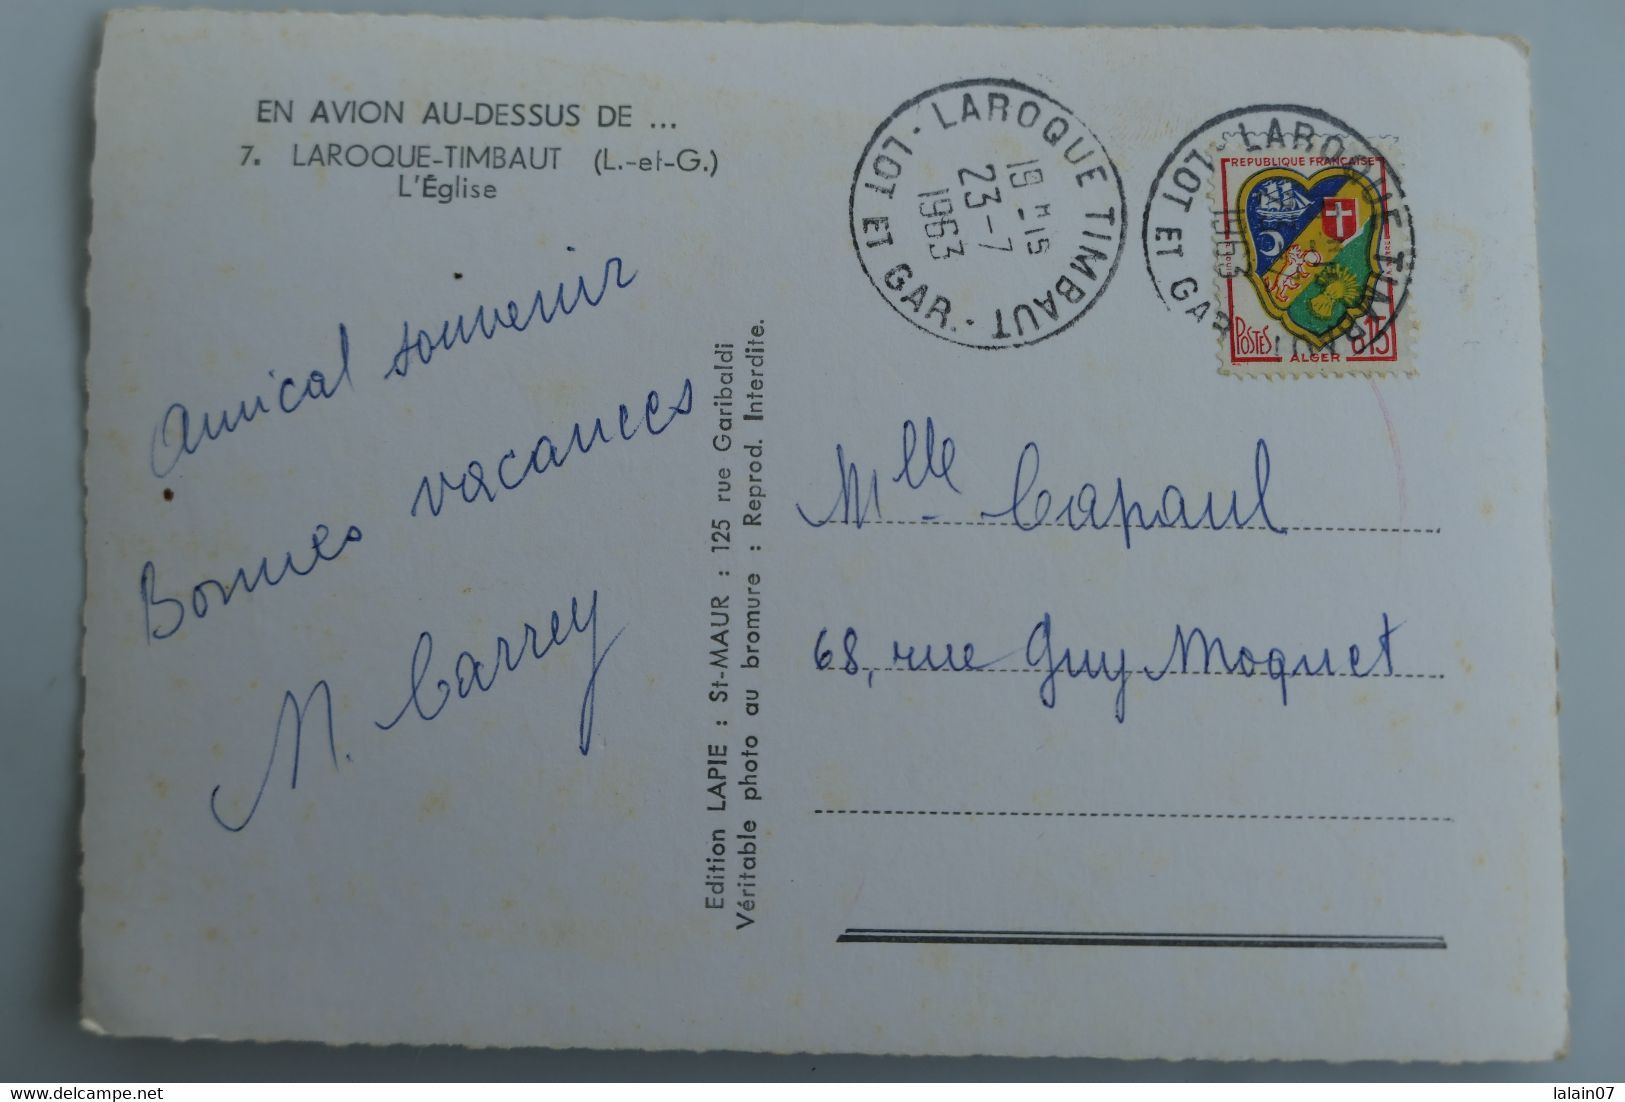 EN AVION AU-DESSUS DE ...
7. LAROQUE-TIMBAUT (L.-et-G.)
L'Église
Amical souvenir
Bonnes vacances
M. Carrey
Edition LAPIE : St-MAUR : 125 rue Garibaldi
Véritable photo au bromure : Reprod. Interdite.
LAROQUE TIMBAUT
19 H 15
23-7
1963
LOT ET GAR.
LAROQUE TIMBAUT
1963
LOT ET GAR.
REPUBLIQUE FRANCAISE
POSTES
ALGER
0,15
Mlle Capaul
68, rue Guy Moquet
lalain07